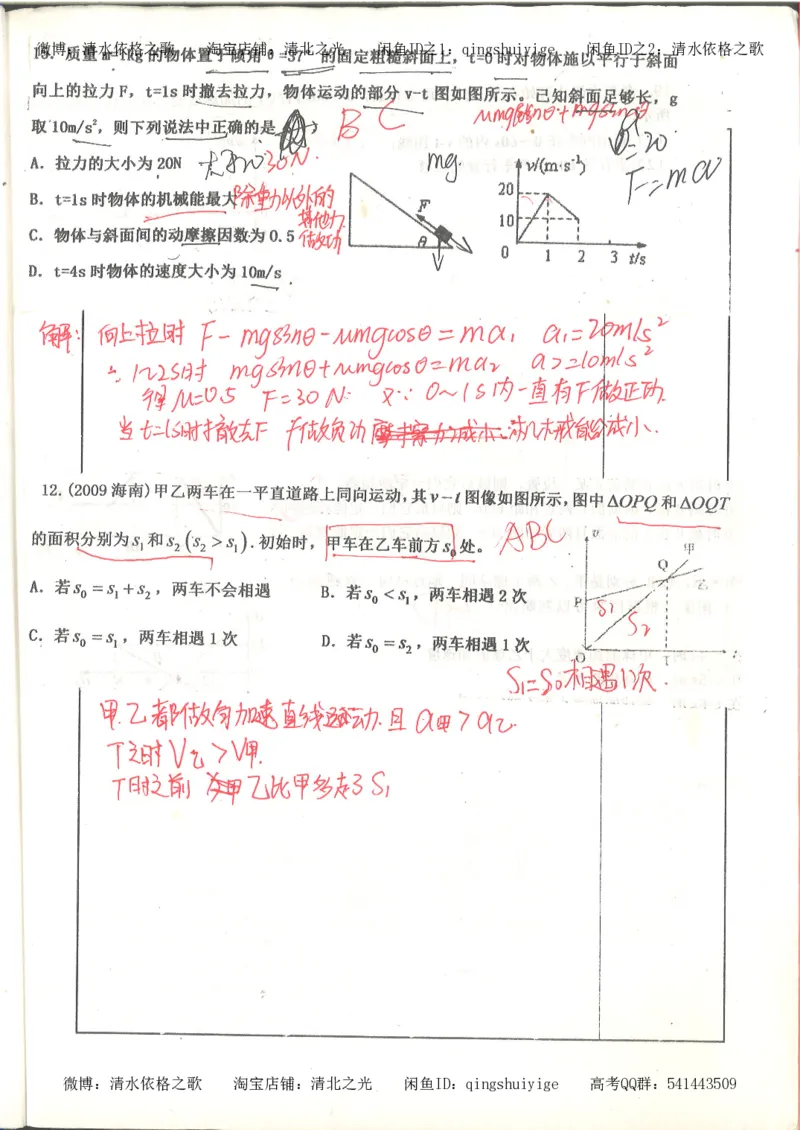 微博：清水依格之歌 淘宝店铺：清北之光 闲鱼ID之1：qingshuiyige 闲鱼ID之2：清水依格之歌
13. 质量m=1kg的物体置于倾角θ=37°的固定粗糙斜面上，t=0时对物体施以平行于斜面
向上的拉力F，t=1s时撤去拉力，物体运动的部分v-t图如图所示。已知斜面足够长，g
取10m/s²，则下列说法中正确的是（ ） BC
A．拉力的大小为20N 30N.
B．t=1s时物体的机械能最大 除重力以外的
其他力
做功
C．物体与斜面间的动摩擦因数为0.5
D．t=4s时物体的速度大小为10m/s
mg
F=ma
F
θ
v/(m·s⁻¹)
20
10
0 1 2 3 t/s
解：向上拉时 F-mgsinθ-μmgcosθ=ma₁ a₁=20m/s²
1~2s时 mgsinθ+μmgcosθ=ma₂ a₂=10m/s²
得μ=0.5 F=30N 又∵0~1s内一直有F做正功.
当t=1s时撤去F f做负功 机械能减小.
12.(2009海南)甲乙两车在一平直道路上同向运动，其v-t图像如图所示，图中△OPQ和△OQT
的面积分别为s₁和s₂(s₂>s₁).初始时，甲车在乙车前方s₀处。 ABC
A．若s₀=s₁+s₂，两车不会相遇 B．若s₀<s₁，两车相遇2次
C．若s₀=s₁，两车相遇1次 D．若s₀=s₂，两车相遇1次
v
甲
Q
乙
P
S₁
S₂
O T t
S₁=S₀相遇1次.
甲.乙都做匀加速直线运动.且a甲>a乙.
T之时V乙>V甲.
T时之前 乙比甲多走了S₁
微博：清水依格之歌 淘宝店铺：清北之光 闲鱼ID：qingshuiyige 高考QQ群：541443509